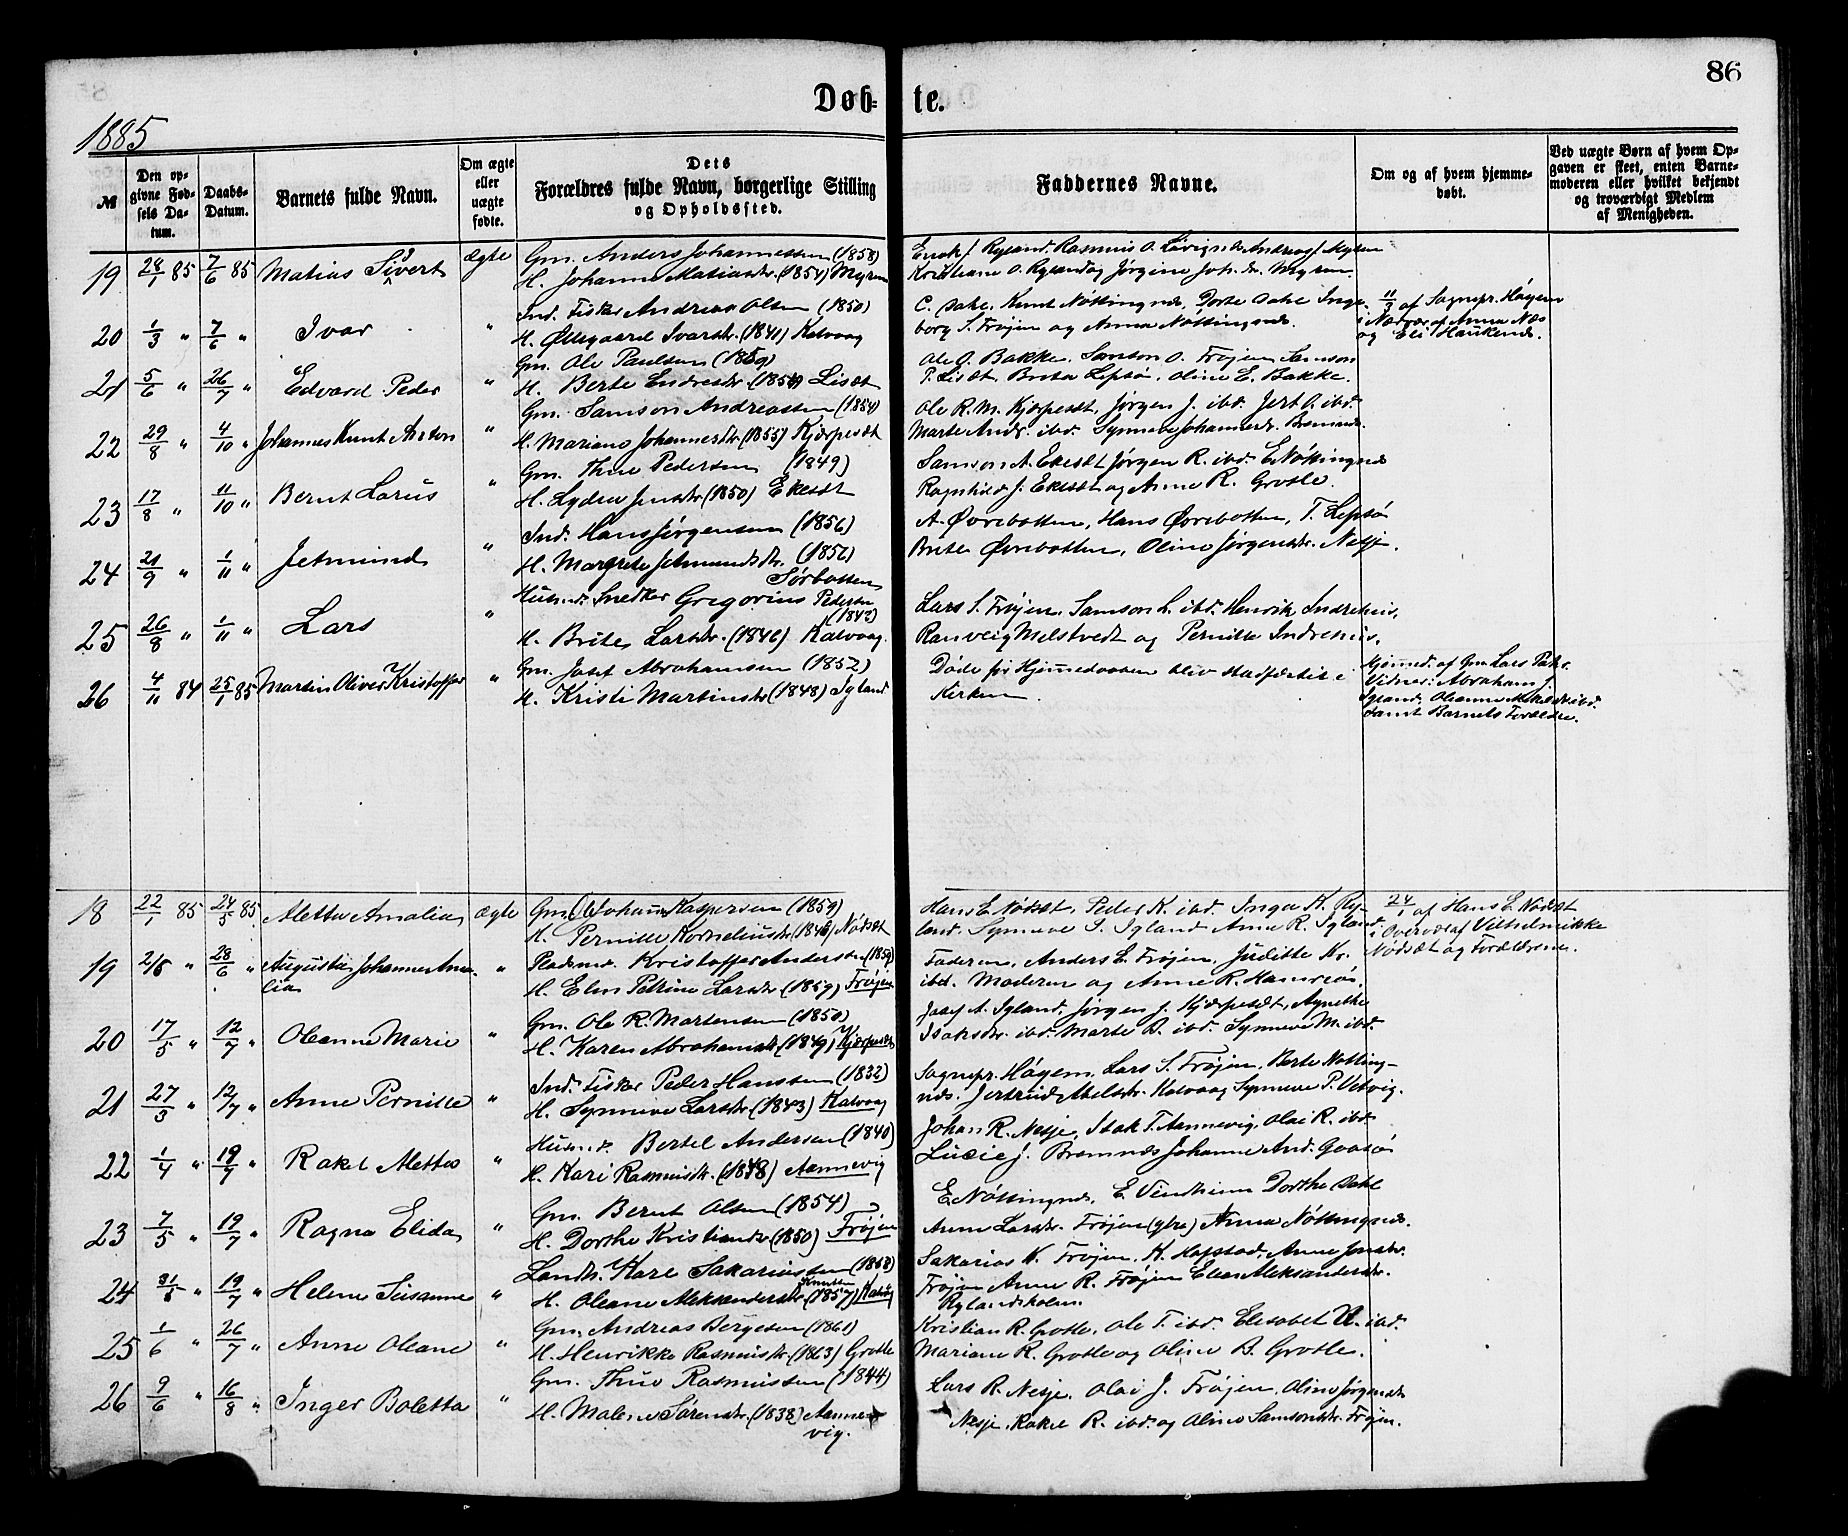 86
Døb-te.
1885
№
Den op-
givne Fød-
sels Da-
tum.
Daabs-
Datum.
Barnets fulde Navn.
Om ægte
eller
uægte
fødte.
Dets
Forældres fulde Navn, borgerlige Stilling
og Opholdssted.
Faddernes Navne.
Om og af hvem hjemme-
døbt.
Ved uægte Børn af hvem Op-
gaven er skeet, enten Barne-
moderen eller hvilket bekjendt
og troværdigt Medlem
af Menigheden.
19 28/1 85 7/6 85 Matias Sivert ægte Gm. Anders Johannessen (1858)
H. Johanne Matiasdr. (1854) Myren
Enok J. Ryland. Rasmus O. Løvignds Andreas J. Myren
Kristiane O. Ryland og Jørgine Joh. dr. Myren.
20 1/3 " 7/6 " Ivar " Ind. Fisker Andreas Olsen (1850)
H. Øllegaard Ivarsdr. (1841) Kalvaag
C. Dahl. Knut Nøttingnds. Dorte Dahl Inge-
borg S. Frøjen og Anna Nøttingnds.
11/3 af Sognepr. Høyem
i Nærvær af Anna Næs
og Eli Haukends.
21 5/6 " 26/7 " Edvard Peder " Gm. Ole Paulsen (1859)
H. Berte Endresdr. (1854) Lisæt
Ole O. Bakke. Samson O. Frøjen, Samson
P. Lisæt, Brita Lepsø, Oline E. Bakke.
22 29/8 " 4/10 " Johannes Knut Anton " Gm. Samson Andreassen (1854)
H. Mariane Johannesdr. (1855) Kjærpesæt
Ole R. M. Kjærpesæt, Jørgen J. ibd. Jert O. ibd.
Marte Andr. ibd. Synneve Johannesdr. Bremnds.
23 17/8 " 11/10 " Bernt Larus " Gm. Thue Pedersen (1849)
H. Lydea Jensdr. (1850) Ekesæt
Samson A. Ekesæt Jørgen R. ibd. E. Nøttingnds
Ragnhild J. Ekesæt og Anne R. Grotle.
24 21/9 " 1/11 " Jetmund " Ind. Hans Jørgensen (1856)
H. Margrete Jetmundsdr. (1856)
Sørbotten
A. Øvrebotten, Hans Øvrebotten, T. Lepsø
Brite Øvrebotten, Oline Jørgensdr. Nesje.
25 26/8 " 1/11 " Lars " Husmd. Snedker Gregorius Pedersen
(1842)
H. Brite Larsdr. (1846) Kalvaag.
Lars S. Frøjen, Samson L. ibd. Henrik Indrehus,
Ranveig Melstvedt og Pernille Indrehus.
26 4/11 84 25/1 85 Martin Oliver Kristoffer " Gm. Josef Abrahamsen (1852)
H. Kristi Martinsdr. (1848) Igland
Døde før Hjemmedaaben blev stadfæstet i
Kirken
Hjemmed. af Gm Lars Peders.
Vidner: Abraham J.
Igland, Oleanne ibd.
samt Barnets Forældre.
18 22/1 85 24/5 85 Aletta Amalia ægte Gm. Ole Johan Kaspersen (1859)
H. Pernille Korneliusdr. (1846) Nødsæt
Hans E. Nødsæt, Peder K. ibd. Inga K. Ry-
land. Synneve S. Igland Anne R. Igland.
24/1 af Hans E. Nødsæt
i Overvær af Vilhelmikke
Nødsæt og Forældrene.
19 2/5 " 28/6 " Augusta Johanne Ama-
lia " Pladsmd. Kristoffer Andersen (1859)
H. Elen Petrine Larsdr. (1859) Frøjen
Faderen, Anders E. Frøjen, Juditte Kr.
ibd. Moderen og Anne R. Hamreø.
20 17/5 " 12/7 " Oleanna Marie " Gm. Ole R. Mortensen (1850)
H. Karen Abrahamsdr. (1849) Kjærpesæt
Josef A. Igland, Jørgen J. Kjærpesæt, Agnethe
Isaksdr. ibd. Marte A. ibd. Synneve M. ibd.
21 27/3 " 12/7 " Anne Pernille " Ind. Fisker Peder Hanssen (1832)
H. Synneve Larsdr. (1843) Kalvaag
Sognepr. Høyem, Lars S. Frøjen, Berte Nøtting-
nds. Jertrud Abelsdr. Kalvaag Synneve P. Utvig.
22 1/4 " 19/7 " Rakel Aletta " Husmd. Bertel Andersen (1840)
H. Kari Rasmusdr. (1848) Aannevig
Johan R. Nesje, Isak T. Aannevig, Olai R. ibd.
Lusie J. Bremnæs Johanne And. Gaasø
23 7/5 " 19/7 " Ragna Elida " Gm. Bernt Olsen (1854)
H. Dorthe Kristiansdr. (1850) Frøjen
E. Nøttingnds, E. Vindheim Dorthe Dahl
Anne Larsdr. Frøjen (ytre) Anna Nøttingnds.
24 31/5 " 19/7 " Helene Susanne " Landh. Karl Sakariassen (1868)
Knutten
H. Oleane Aleksandersdr. (1857) Kalvåg
Sakarias K. Frøjen, K. Hopstad, Anne Jonsdr.
Frøjen Anne R. Frøjen Elen Aleksandersdr.
Rylandsholm.
25 1/6 " 26/7 " Anne Oleane " Gm. Andreas Bergesen (1861)
H. Henrikke Rasmusdr. (1863) Grotle
Kristian R. Grotle, Ole T. ibd. Elisabet R. ibd.
Mariane R. Grotle og Oline B. Grotle.
26 9/6 " 16/8 " Inger Boletta " Gm. Thue Rasmussen (1844)
H. Malene Sørensdr. (1838) Aanne-
vig.
Lars R. Nesje, Olai J. Frøjen, Oline Jørgensdr.
Nesje, Rakel R. ibd. og Oline Samsonsdr. Frøjen.